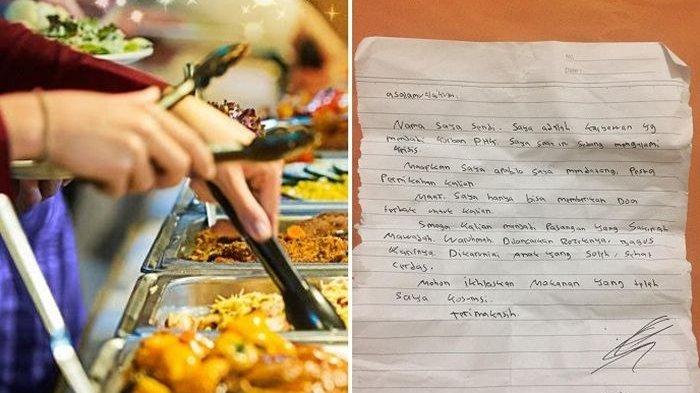 No
Date
asalamualaikum.
Nama saya Sendi. Saya adalah karyawan yg
menjadi korban PHK Saya saat ini sedang mengalami
krisis
Maafkan saya apabila saya mendatangi Pesta
Pernikahan kalian
Maaf. Saya hanya bisa memberikan Doa
terbaik untuk kalian.
Smoga kalian menjadi Pasangan yang Sakinah
Mawadah. Warohmah Dilancarkan Rezekinya, Bagus
Karirnya. Dikaruniai anak yang soleh, sehat
cerdas.
Mohon ikhlaskan Makanan yang telah
saya konsumsi.
Terimakasih.